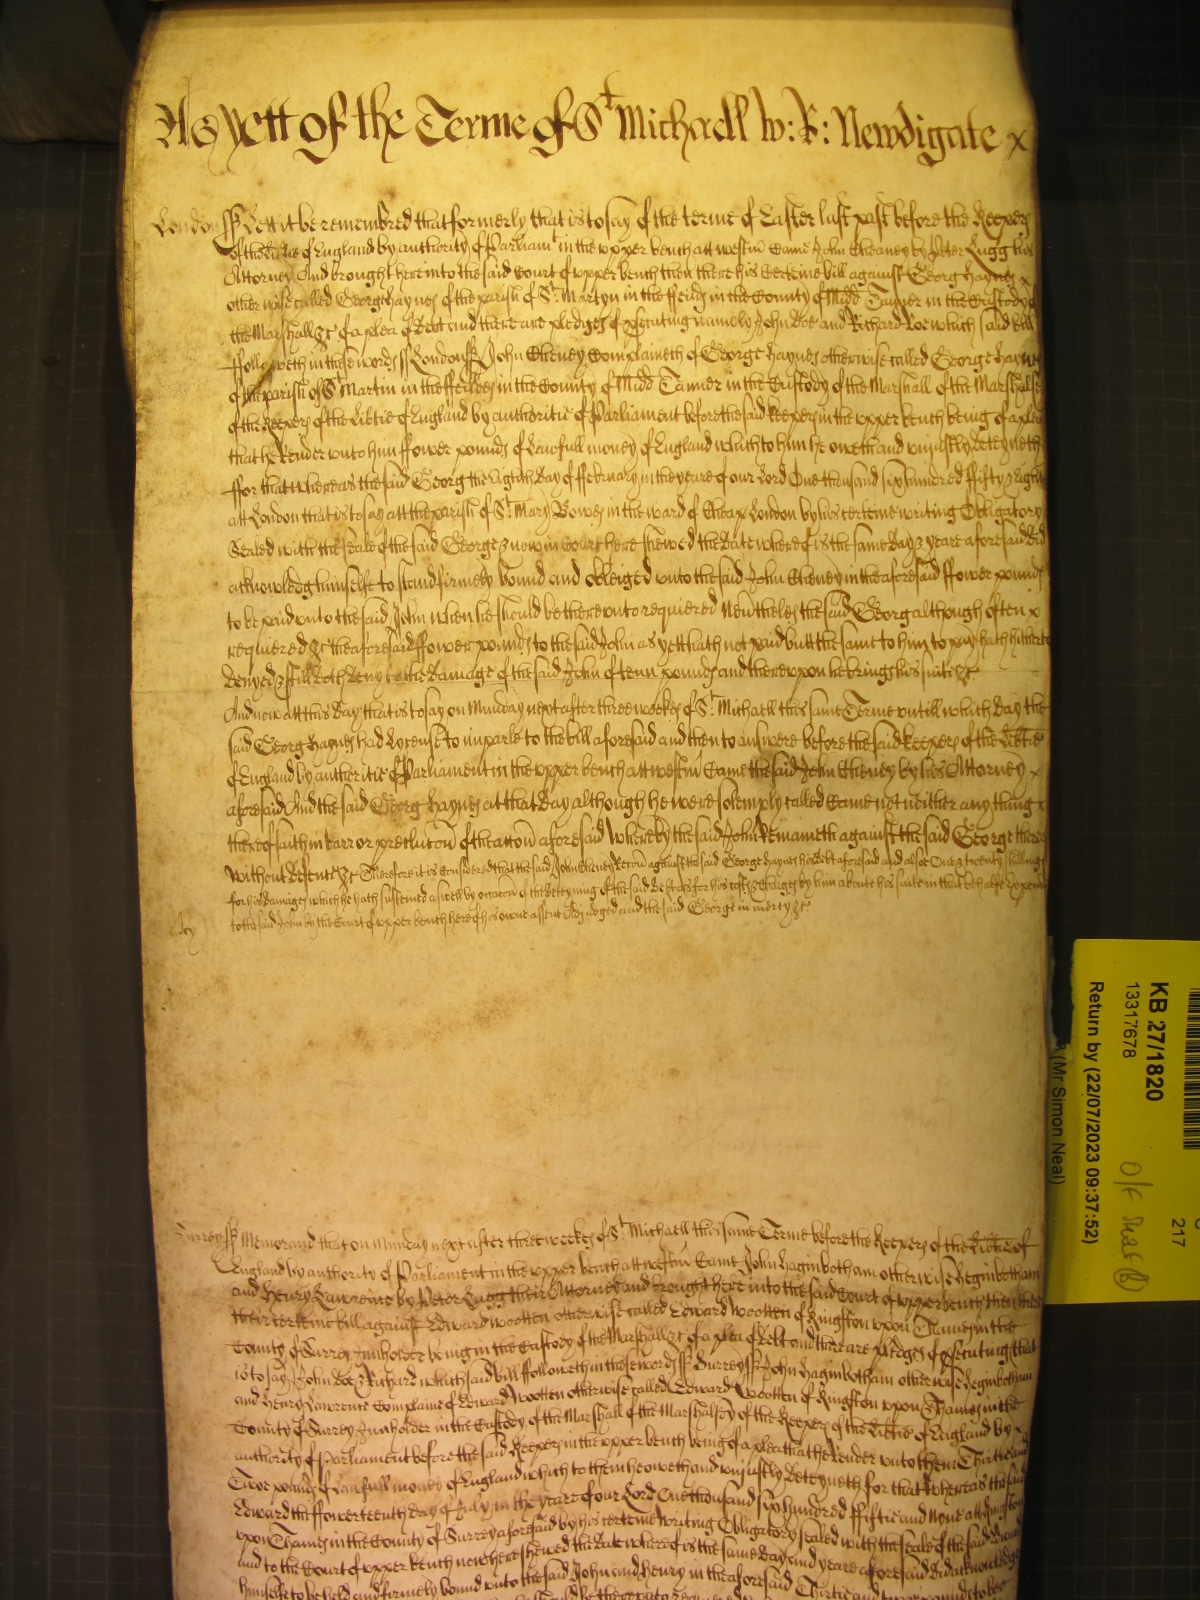 As yett of the Terme of St Michaell W: R: Newdigate x
London ss Lett it be remembred that formerly that is to say of the terme of Easter last past before the Keepers
of the Libtie of England by authority of Parliamt in the upper bench att westm Came John Cheaney by Peter Lugg his
Attorney And brought here into the said Court of upper bench then there his Certeine bill against Georg Haynes x
otherwise called George Haynes of the parish of St Martyn in the ffeilds in the County of Midd Tanner in the Custody of
the Marshall &c of a plea of Debt and there are pledges of psecuting namely John Doe and Richard Roe which said bill
ffolloweth in these words ss London ss John Cheney Complaineth of George Haynes otherwise called George Haynes
of the parish of St Martin in the ffeildes in the County of Midd Tanner in the Custody of the Marshall of the Marshalsey
of the Keepers of the Libtie of England by authoritie of Parliament before the said keepers in the upper bench being of a plea
that he Render unto him ffower pounds of Lawfull money of England which to him he oweth and uniustly deteyneth
ffor that whereas the said Georg the Eighth day of ffebruary in the yeare of our Lord One thousand six hundred ffifty & eight
att London that is to say att the parish of St Mary Bowes in the ward of Cheap London by his certeine writing Obligatory
Sealed with the seale of the said George & now in Court here shewed the date whereof is the same day & yeare aforesaid did
acknowledg himselfe to stand firmely bound and obleiged unto the said John Cheney in the aforesaid ffower pounds
to be paid unto the said John when he should be thereunto requiered Nevtheles the said Georg although often x
requiered &c the aforesaid ffower pounds to the said John as yett hath not paid butt the same to him to pay hath hitherto
denyed & still doth deny to the damage of the said John of tenn pounds and thereupon he brings his suite &c
And now att this day that is to say on Munday next after three weekes of St Michaell this same Terme untill which day the
said Georg Haynes had License to imparle to the bill aforesaid and then to answere before the said keepers of the Libtie
of England by authoritie of Parliament in the upper bench att westm Came the said John Cheney by his Attorney x
aforesaid And the said Georg Haynes at that day although he were solemply called Came not neither any thing x
thereof saith in barr or preclucon of the accon aforesaid Whereby the said John Remaineth against the said George therein
without defence &c Therefore it is Considered that the said John Cheney Recov against the said George Haynes his debt aforesaid and alsoe One & twenty shillings
for his damages which he hath susteined aswell by occasion of the deteyning of the said debt as for his costs & Charges by him about his suite in that behalfe expended
to the said John by the Court of upper bench here of his owne assent Adjudged and the said George in mercy &c
Surrey ss Memorand that on Munday next after three weekes of St Michaell this same Terme before the Keepers of the Libtie of
England by authority of Parliament in the upper bench att westm Came John Haginbotham otherwise Heginbotham
and Henry Lawrence by Peter Lugg their Attorney and brought here into the said Court of upper bench then there
their certeine bill against Edward Wootten otherwise called Edward Wootten of Kingston upon Thames in the
County of Surrey Innholder being in the Custody of the Marshall &c of a plea of debt and there are pledges of psecuting that
is to say John Doe & Richard which said bill followeth in these words ss Surrey ss John Haginbotham otherwise Heginbotham
and Henry Lawrence Complaine of Edward Wootten otherwise called Edward Wootten of Kingston upon Thames in the
County of Surrey Innholder in the Custody of the Marshall of the Marshalsey of the Keepers of the Libtie of England by x
authority of Parliament before the said Keepers in the upper bench being of a plea that he Render unto them Thirtie and
Twoe pounds of Lawfull money of England which to them he oweth and uniustly deteyneth for that whereas the said
Edward the ffowerteenth day of July in the yeare of our Lord One thousand six hundred ffiftie and Nyne att Kingston
upon Thames in the County of Surrey aforesaid by his certeine writing Obligatory sealed with the seale of the said Edward
and to the Court of upper bench now here shewed the date whereof is the same day and yeare aforesaid did acknowledge
himselfe to be held and firmely bound unto the said John and Henry in the aforesaid Thirtie and twoe pounds to bee
KB 27/1820
13317678
Return by (22/07/2023 09:37:52)
(Mr Simon Neal)
217